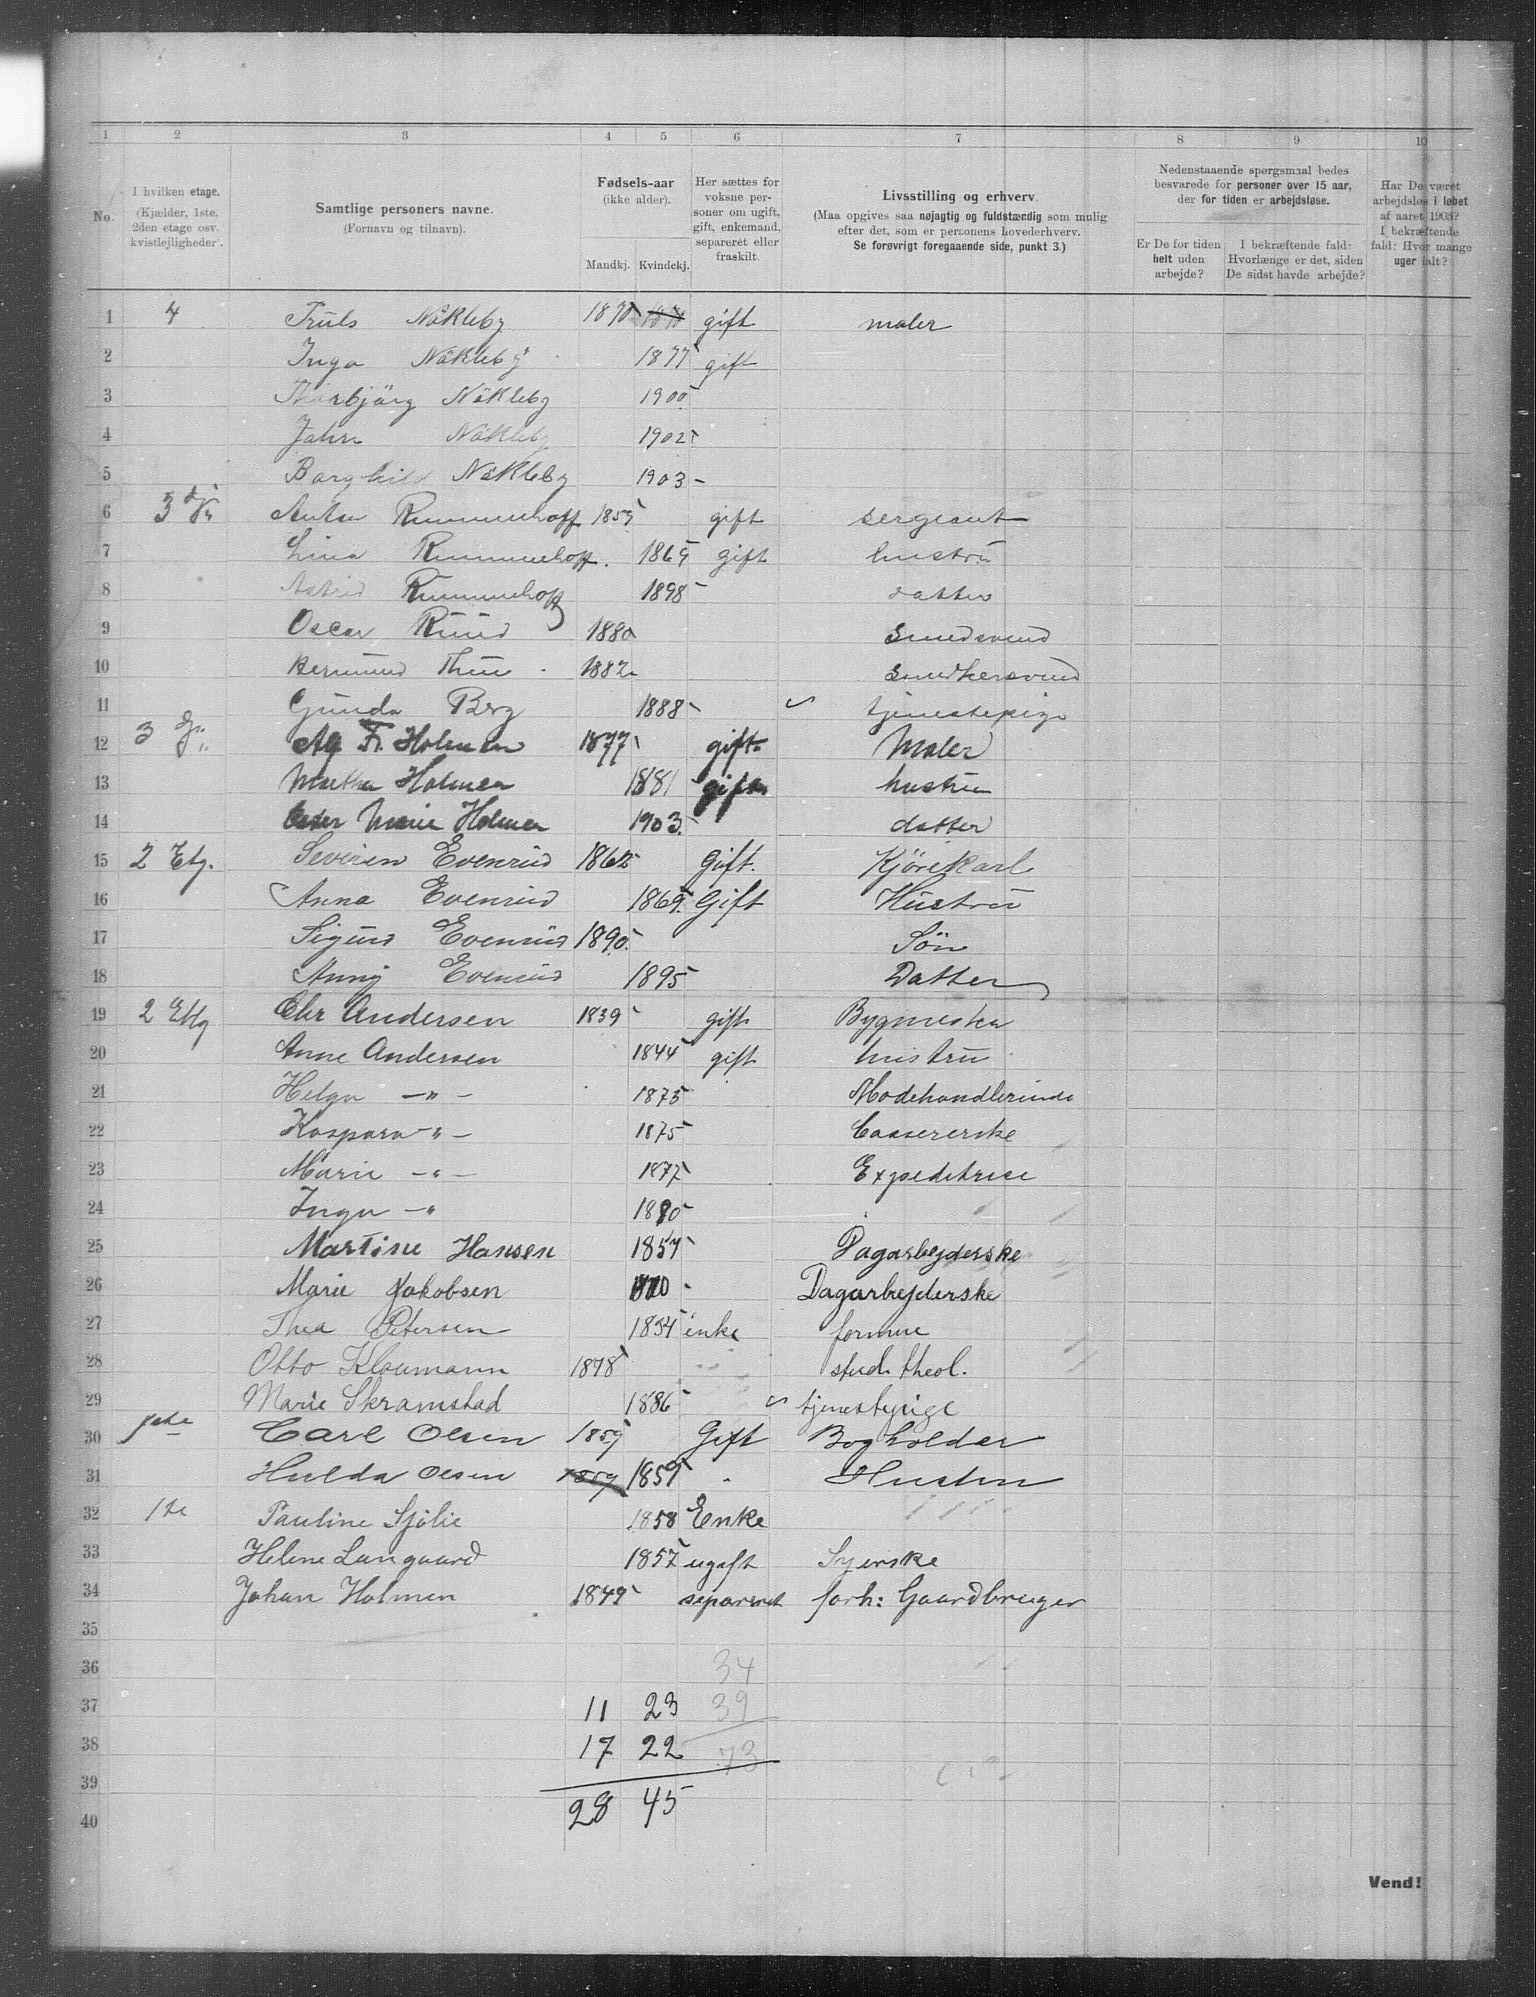 1 2 3 4 5 6 7 8 9 10
No.
I hvilken etage. (Kjælder, 1ste, 2den etage osv. kvistlejligheder).
Samtlige personers navne. (Fornavn og tilnavn).
Fødsels-aar (ikke alder). Mandkj. Kvindekj.
Her sættes for voksne personer om ugift, gift, enkemand, separeret eller fraskilt.
Livsstilling og erhverv. (Maa opgives saa nøjagtig og fuldstændig som mulig efter det, som er personens hovederhverv. Se forøvrigt foregaaende side, punkt 3.)
Nedenstaaende spørgsmaal bedes besvarede for personer over 15 aar, der for tiden er arbejdsløse.
Er De for tiden helt uden arbejde?
I bekræftende fald: Hvorlænge er det, siden De sidst havde arbejde?
Har De været arbejdsløs i løbet af aaret 1903? I bekræftende fald: Hvor mange uger ialt?
1 4 Truls Näkleby 1870 gift maler
2 Inga Näkleby 1877 gift
3 Thorbjörg Näkleby 1900
4 Jahn Näkleby 1902
5 Borghild Näkleby 1903
6 3 Anton Rummelhoff 1859 gift sergeant
7 Lina Rummelhoff. 1869 gift hustrü
8 Astrid Rummelhoff 1898 datter
9 Oscar Ruud 1880 smedsvend
10 Thue 1882
11 Gunda Berg 1888 tjenestepige
12 3 Alf Fr. Holmen 1877 gift Maler
13 Martha Holmen 1881 gift hustru
14 Marie Holmen 1903 datter
15 2 Etg. Severin Evenrud 1862 Gift. Kjörekarl
16 Anna Evenrud 1869. Gift Hustru
17 Sigurd Evenrud 1890. Sön
18 Anny Evenrud 1895 Datter
19 2 Etg Chr Andersen 1839 gift Bygmester
20 Anne Andersen 1844 gift hustru
21 Helga —"— 1873 Modehandlerinde
22 Kaspara —"— 1875 Cassererske
23 Marie —"— 1877 Expeditrise
24 Inga —" 1880
25 Martine Hansen 1857 Dagarbejderske
26 Marie Jakobsen Dagarbejderske
27 Thea Petersen 1854 enke formue
28 Otto Kloumann 1878 stud. theol.
29 Marie Skramstad 1886 tjenestepige
30 1ste Carl Olsen 1859 Gift Bogholder
31 Hulda Olsen 1859 1859 " Hustru
32 1te Pauline Sjölie 1858 Enke
33 Helene Langaard 1857 ugift Syerske
34 Johan Holmen 1849 separeret forh: Gaardbruger
35
36 34
37 11 23 39
38 17 22 73
39
40 28 45
Vend!